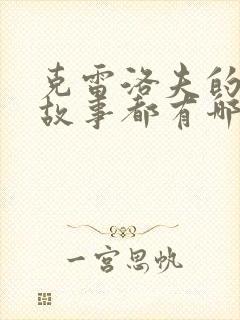 克雷洛夫的
故事都有哪
一宫思帆